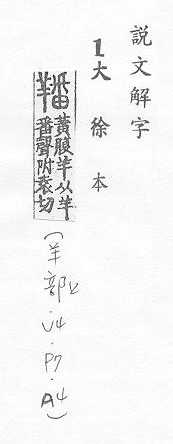 説文解字
1大徐本
羳 黃腹羊从羊
番聲附袁切
(羊部2.V4.P7.A4)